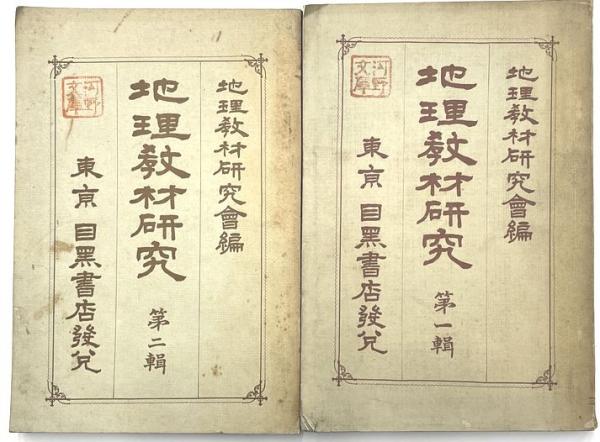 地理教材研究會編
地理教材研究
第一輯
東京 目黑書店發兌
河野
文庫
地理教材研究會編
地理教材研究
第二輯
東京 目黑書店發兌
河野
文庫